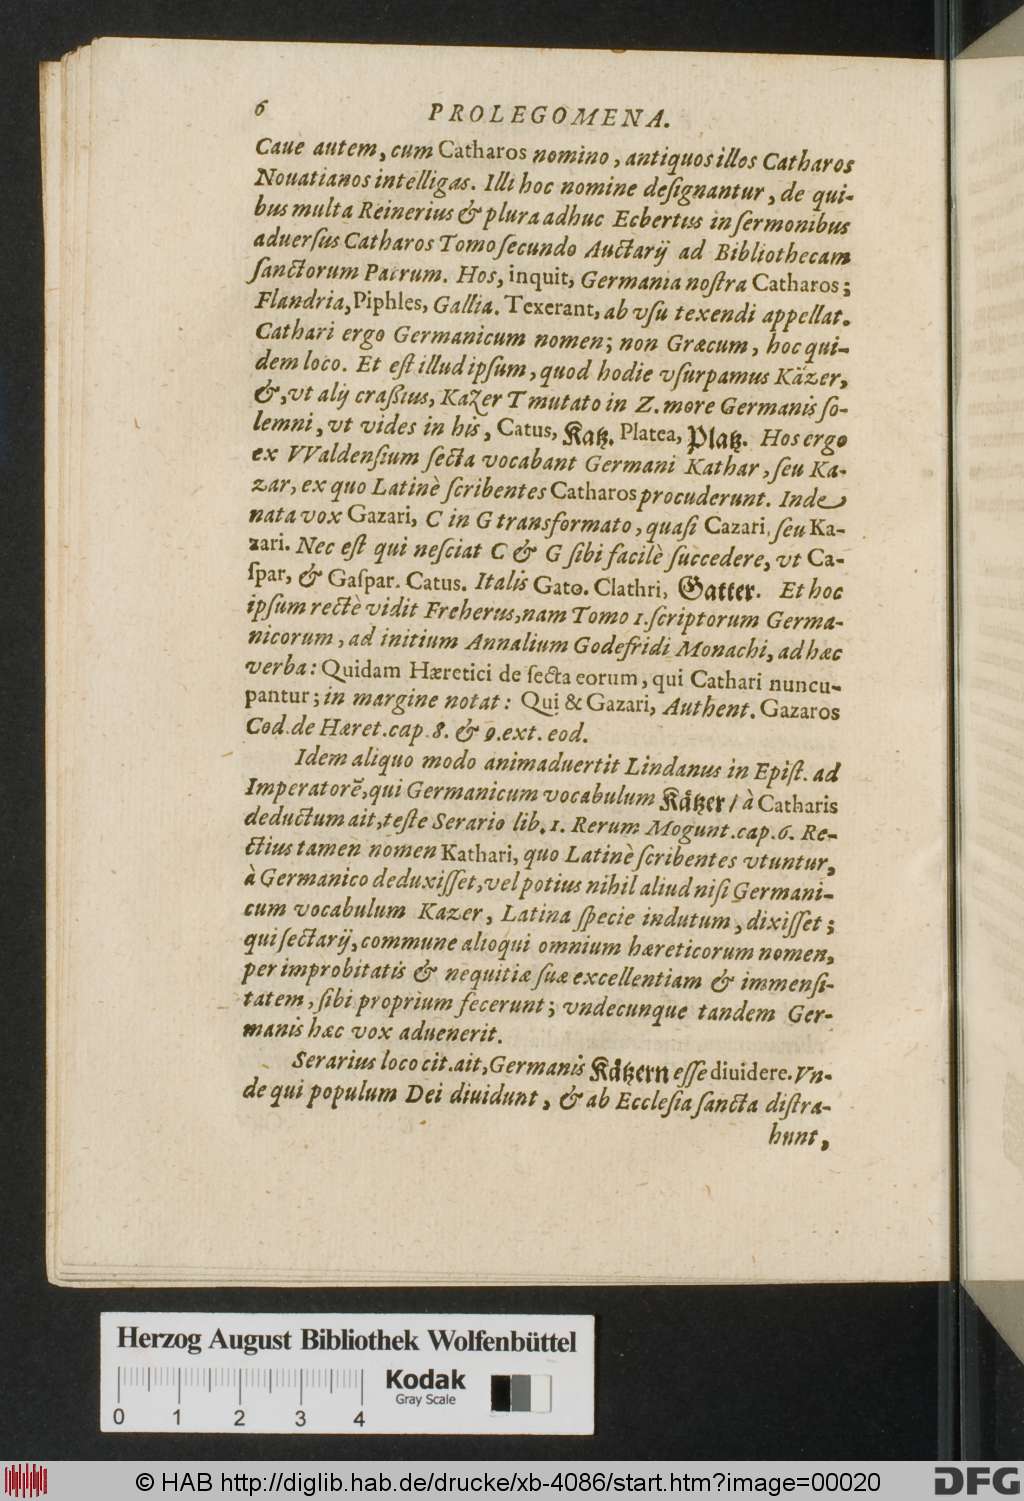 6 PROLEGOMENA.
Caue autem, cum Catharos nomino, antiquos illos Catharos
Nouatianos intelligas. Illi hoc nomine deſignantur, de qui-
bus multa Reinerius & plura adhuc Ecbertus in ſermonibus
aduerſus Catharos Tomo ſecundo Auctarij ad Bibliothecam
ſanctorum Patrum. Hos, inquit, Germania noſtra Catharos;
Flandria, Piphles, Gallia. Texerant, ab vſu texendi appellat.
Cathari ergo Germanicum nomen; non Græcum, hoc qui-
dem loco. Et eſt illud ipſum, quod hodie vſurpamus Käzer,
&, vt alij craßius, Kazer T mutato in Z. more Germanis ſo-
lemni, vt vides in his, Catus, Katz. Platea, Platz. Hos ergo
ex VValdenſium ſecta vocabant Germani Kathar, ſeu Ka-
zar, ex quo Latinè ſcribentes Catharos procuderunt. Inde
nata vox Gazari, C in G transformato, quaſi Cazari, ſeu Ka-
zari. Nec eſt qui neſciat C & G ſibi facilè ſuccedere, vt Ca-
ſpar, & Gaſpar. Catus. Italis Gato. Clathri, Gatter. Et hoc
ipſum rectè vidit Freherus, nam Tomo 1. ſcriptorum Germa-
nicorum, ad initium Annalium Godefridi Monachi, ad hæc
verba: Quidam Hæretici de ſecta eorum, qui Cathari nuncu-
pantur; in margine notat: Qui & Gazari, Authent. Gazaros
Cod. de Hæret. cap. 8. & 9. ext. eod.
Idem aliquo modo animaduertit Lindanus in Epiſt. ad
Imperatorẽ, qui Germanicum vocabulum Kätzer / à Catharis
deductum ait, teſte Serario lib. 1. Rerum Mogunt. cap. 6. Re-
ctius tamen nomen Kathari, quo Latinè ſcribentes vtuntur,
à Germanico deduxiſſet, vel potius nihil aliud niſi Germani-
cum vocabulum Kazer, Latina ſpecie indutum, dixiſſet;
qui ſectarij, commune alioqui omnium hæreticorum nomen,
per improbitatis & nequitiæ ſuæ excellentiam & immenſi-
tatem, ſibi proprium fecerunt; vndecunque tandem Ger-
manis hæc vox aduenerit.
Serarius loco cit. ait, Germanis Kätzern eſſe diuidere. Vn-
de qui populum Dei diuidunt, & ab Eccleſia ſancta diſtra-
hunt,
Herzog August Bibliothek Wolfenbüttel
0 1 2 3 4
Kodak
Gray Scale
© HAB http://diglib.hab.de/drucke/xb-4086/start.htm?image=00020
DFG